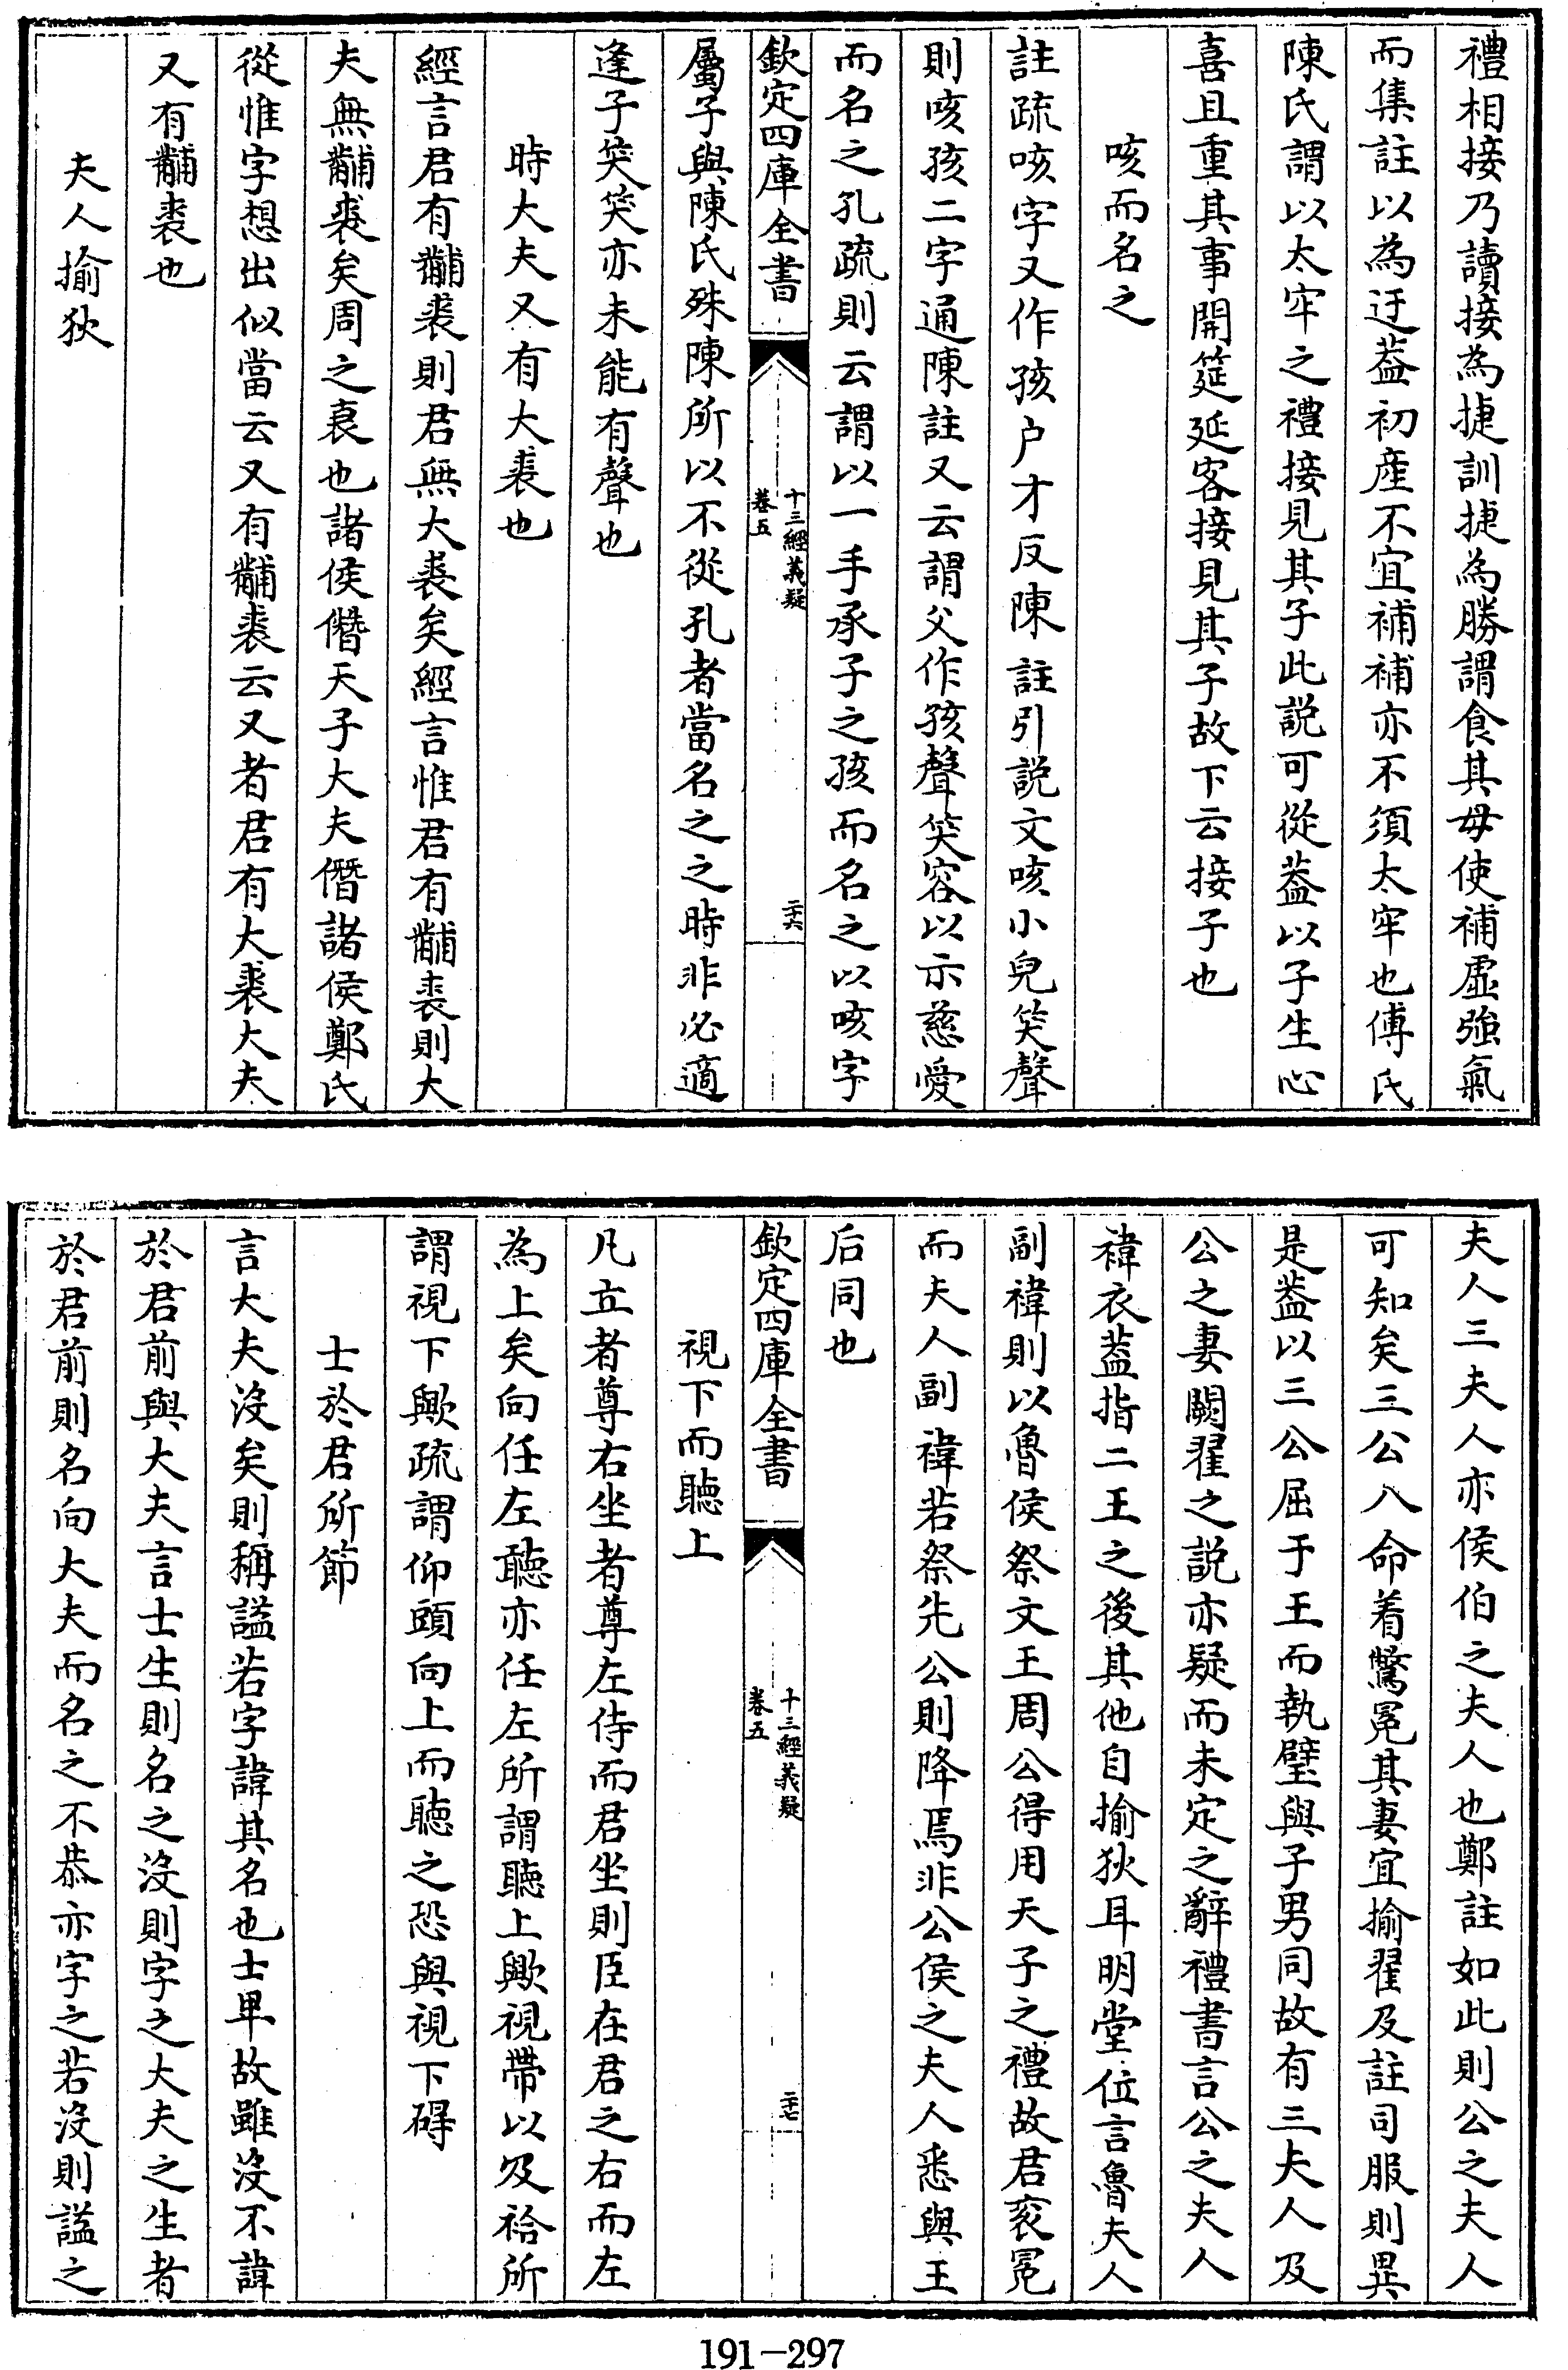 禮相接乃讀接為捷訓捷為勝謂食其母使補虛強氣
而集註以為迂葢初産不宜補補亦不須太牢也傅氏
陳氏謂以太牢之禮接見其子此説可從葢以子生心
喜且重其事開筵延客接見其子故下云接子也
咳而名之
註疏咳字又作孩户才反陳註引説文咳小兒笑聲
則咳孩二字通陳註又云謂父作孩聲笑容以示慈愛
而名之孔疏則云謂以一手承子之孩而名之以咳字
欽定四庫全書
十三經義疑
卷五
二十六
屬子與陳氏殊陳所以不從孔者當名之之時非必適
逢子笑笑亦未能有聲也
時大夫又有大裘也
經言君有黼裘則君無大裘矣經言惟君有黼裘則大
夫無黼裘矣周之衰也諸侯僭天子大夫僭諸侯鄭氏
從惟字想出似當云又有黼裘云又者君有大裘大夫
又有黼裘也
夫人揄狄
夫人三夫人亦侯伯之夫人也鄭註如此則公之夫人
可知矣三公八命着鷩冕其妻宜揄翟及註司服則異
是葢以三公屈于王而執璧與子男同故有三夫人及
公之妻闕翟之説亦疑而未定之辭禮書言公之夫人
褘衣葢指二王之後其他自揄狄耳明堂位言魯夫人
副褘則以魯侯祭文王周公得用天子之禮故君衮冕
而夫人副褘若祭先公則降焉非公侯之夫人悉與王
后同也
欽定四庫全書
十三經義疑
卷五
二十七
視下而聽上
凡立者尊右坐者尊左侍而君坐則臣在君之右而左
為上矣向任左聽亦任左所謂聽上歟視帶以及袷所
謂視下歟疏謂仰頭向上而聽之恐與視下碍
士於君所節
言大夫沒矣則稱謚若字諱其名也士卑故雖沒不諱
於君前與大夫言士生則名之沒則字之大夫之生者
於君前則名向大夫而名之不恭亦字之若沒則謚之
191－297